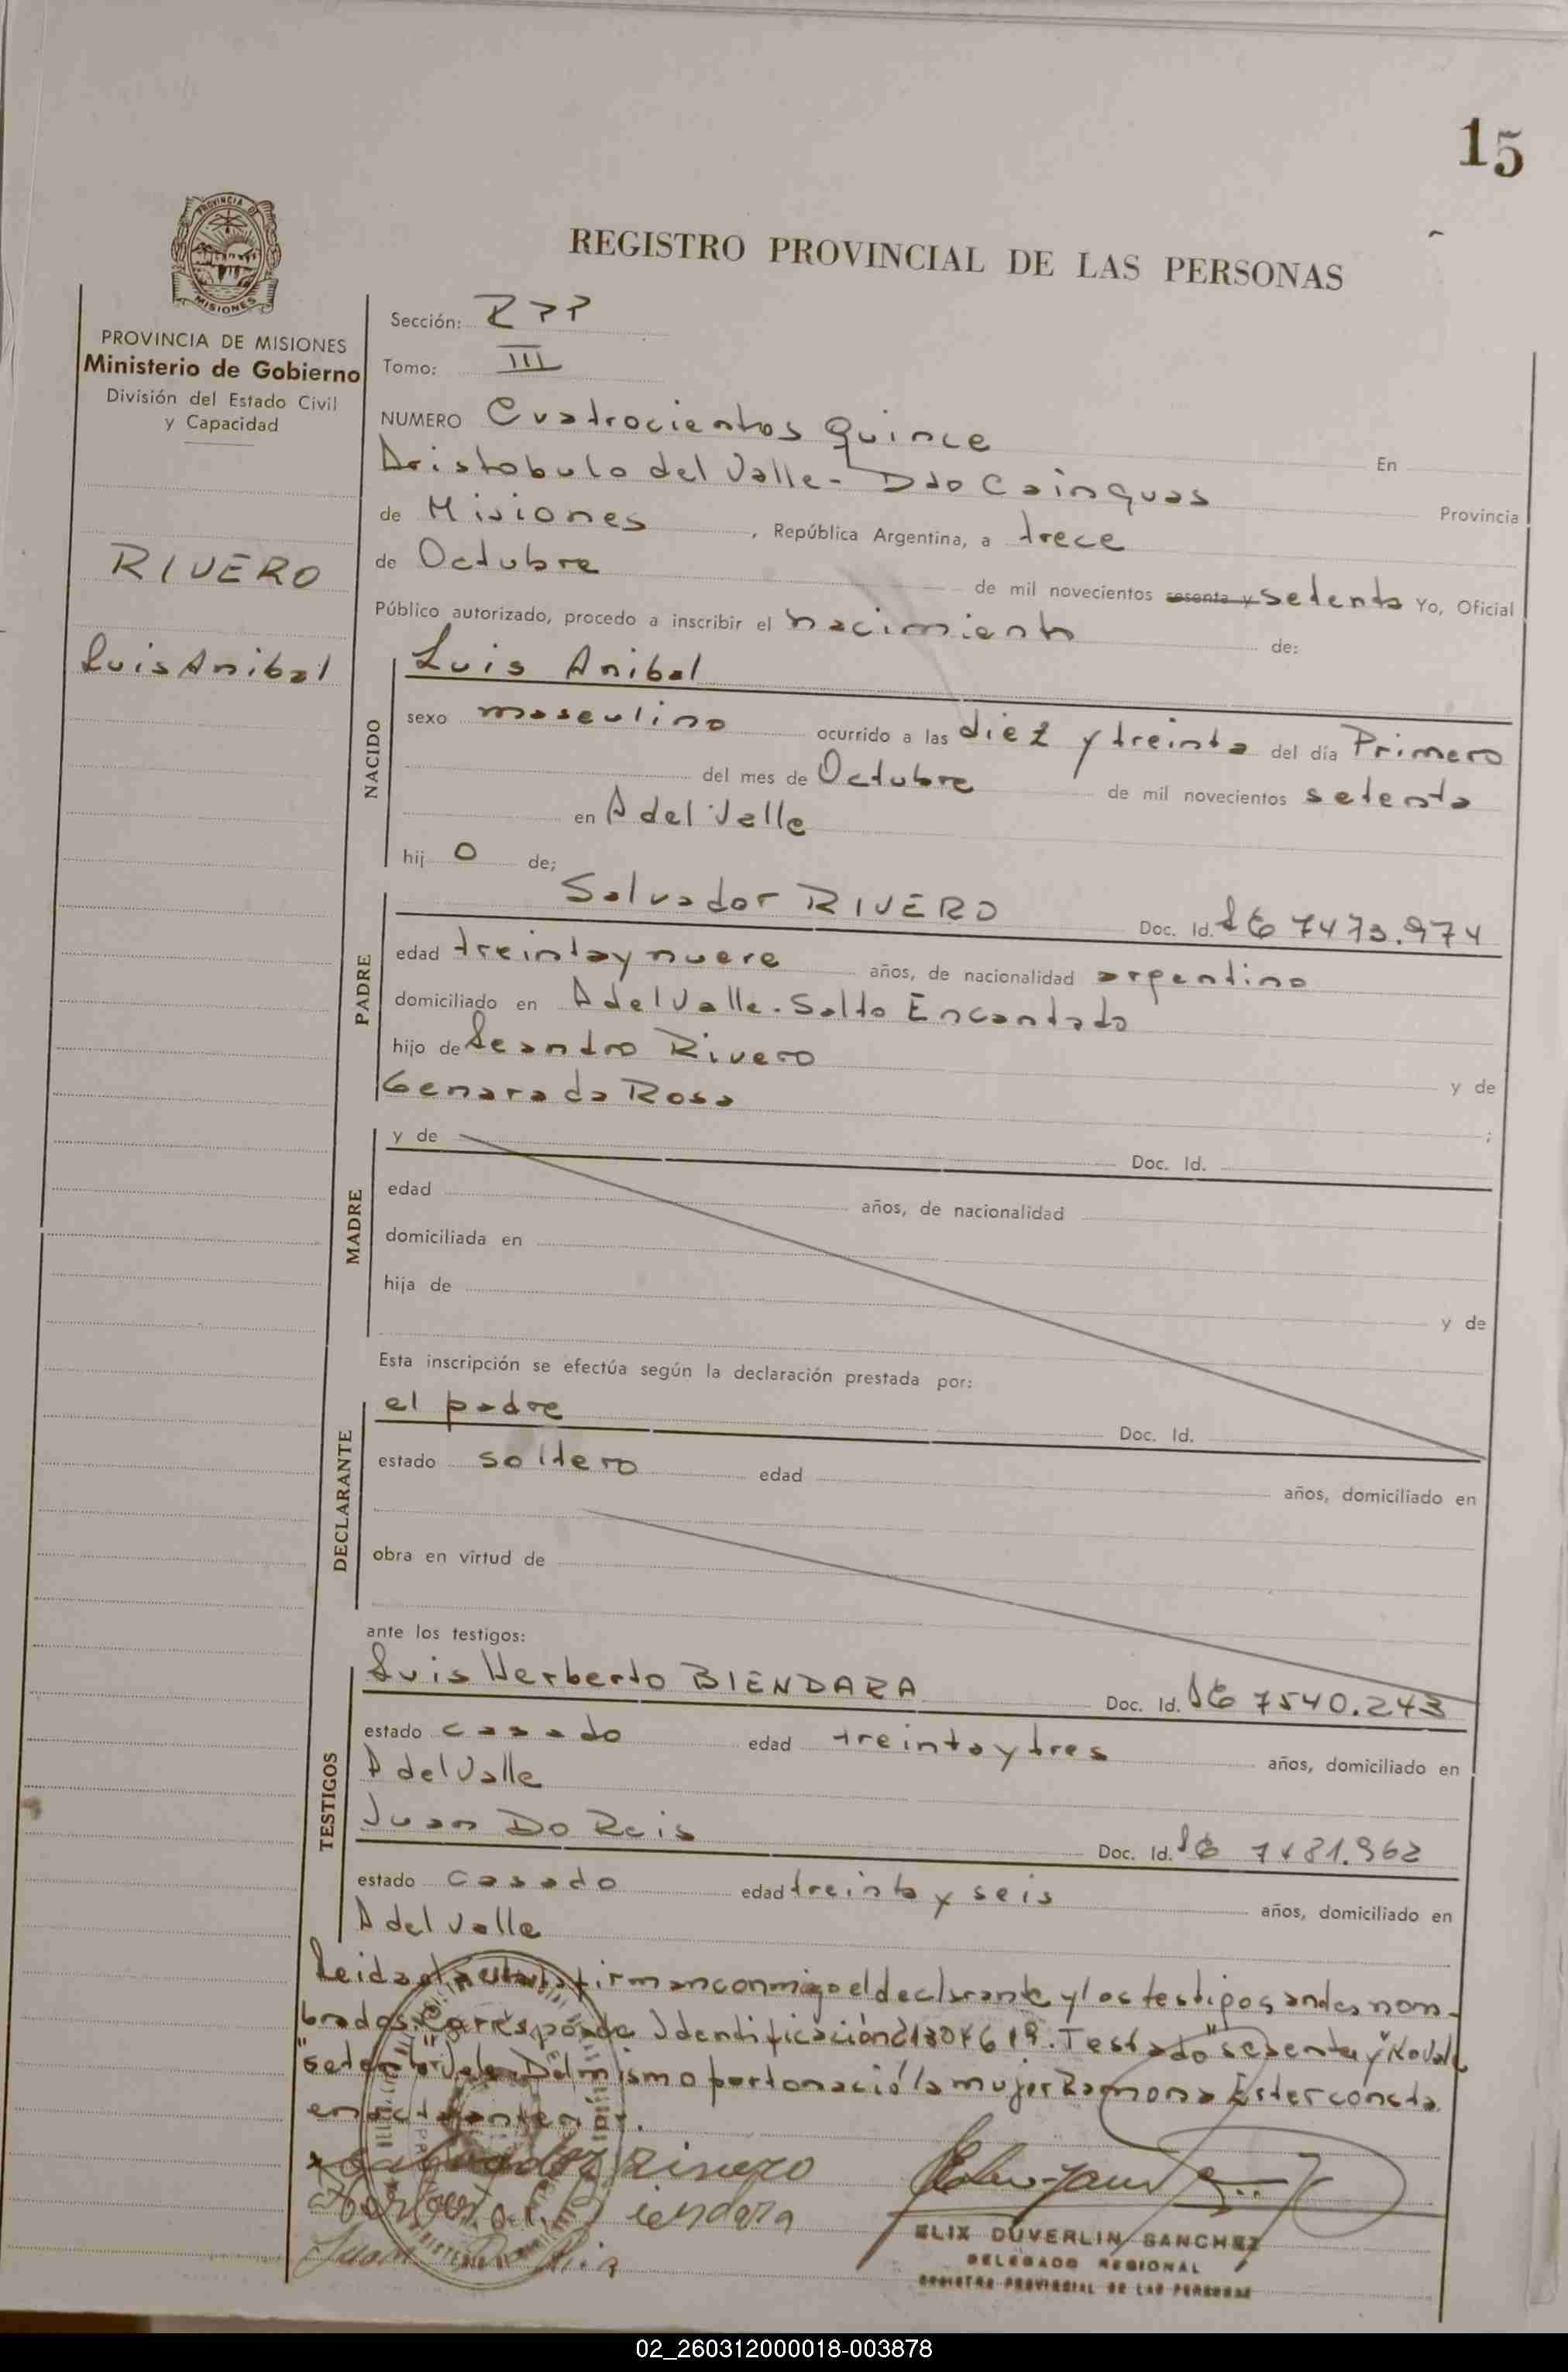 15
PROVINCIA DE
MISIONES
REGISTRO PROVINCIAL DE LAS PERSONAS
PROVINCIA DE MISIONES
Ministerio de Gobierno
División del Estado Civil
y Capacidad
RIVERO
Luis Anibal
Sección: RPP
Tomo: III
NUMERO Cuatrocientos quince En
Aristobulo del Valle - Dto Cainguas Provincia
de Misiones, República Argentina, a trece
de Octubre de mil novecientos sesenta y setenta Yo, Oficial
Público autorizado, procedo a inscribir el nacimiento de:
NACIDO
Luis Anibal
sexo masculino ocurrido a las diez y treinta del día Primero
del mes de Octubre de mil novecientos setenta
en A del Valle
hij o de;
PADRE
Salvador RIVERO Doc. Id. LE 7473.974
edad treinta y nueve años, de nacionalidad argentino
domiciliado en A del Valle - Salto Encantado
hijo de Leandro Rivero y de
Genara da Rosa ;
MADRE
y de Doc. Id.
edad años, de nacionalidad
domiciliada en
hija de y de
Esta inscripción se efectúa según la declaración prestada por:
DECLARANTE
el padre Doc. Id.
estado soltero edad años, domiciliado en
obra en virtud de
ante los testigos:
TESTIGOS
Luis Herberto BIENDARA Doc. Id. LE 7540.243
estado casado edad treinta y tres años, domiciliado en
A del Valle
Juan Do Reis Doc. Id. LE
estado casado edad treinta y seis años, domiciliado en
A del Valle
Leida el acta firman conmigo el declarante y los testigos antes nom-
brados. Corresponde Identificación Testado "sesenta y" No Vale
"setenta" Vale. Del mismo parto nació la mujer Ramona Ester consta
en acta anterior.
Salvador Rivero
Biendara
Juan
ELIX DUVERLIN SANCHEZ
DELEGADO REGIONAL
REGISTRO PROVINCIAL DE LAS PERSONAS
02_260312000018-003878